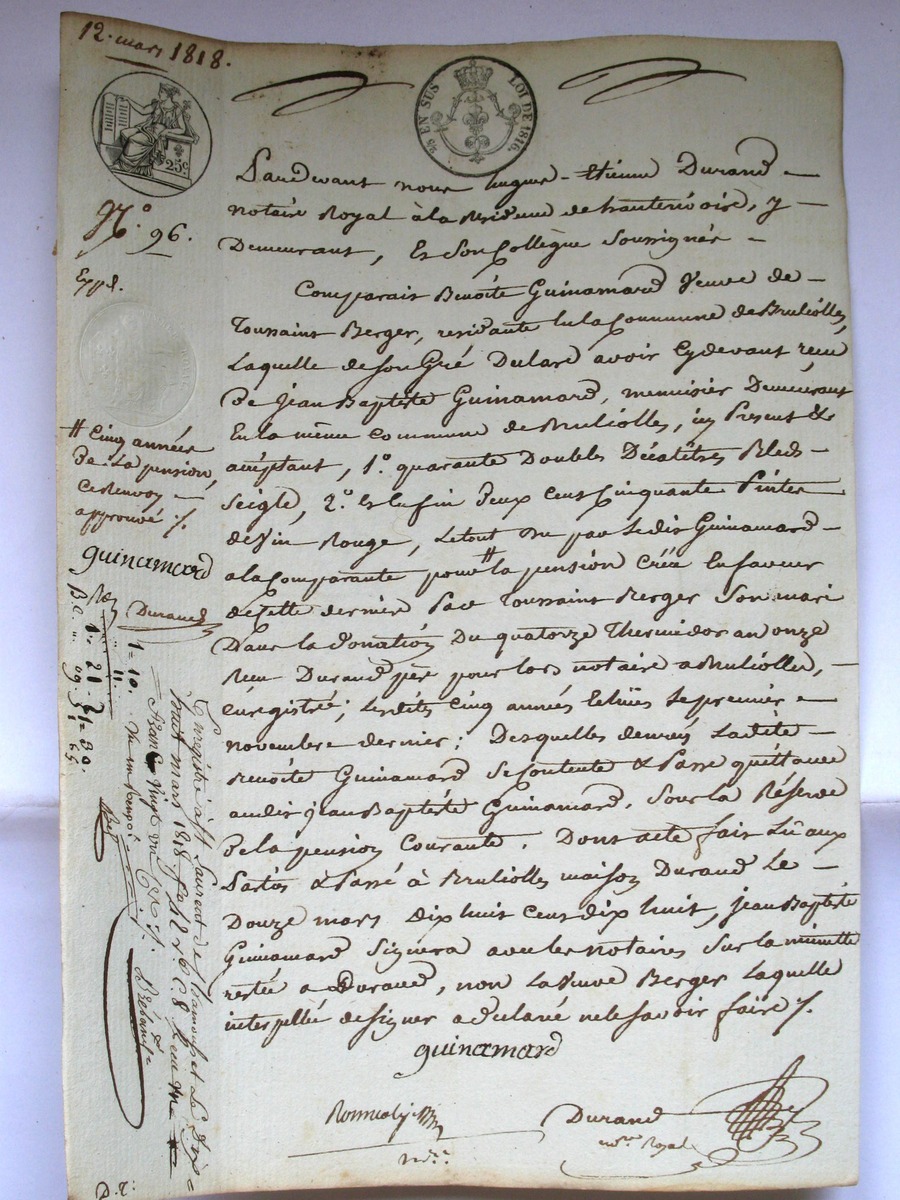 12. mars 1818.
25 EN SUS LOI DE 1816.
25c.
Pardevant nous hugues-Etienne Durand
notaire Royal à la Residence de hauterivoire, y
Demeurant, Et Son Collègue Soussignés
N.° 96.
Expd.
Comparait Benoîte Guinamard Veuve de
Toussaint Berger, residante En la Commune de Brulliolles,
Laquelle de Son Gré Déclare avoir Cy devant reçu
De Jean Baptiste Guinamard, menuisier Demeurant
En la même Commune de Brulliolles, icy Present &
acceptant, 1.° quarante Doubles Décalitres Bled
Seigle, 2.° Et Enfin Deux Cent Cinquante Pintes
de Vin Rouge, Le tout Du par Ledit Guinamard
a la Comparante pour # la pension Créée En faveur
de Cette derniere Par Toussaint Berger Son mari
Dans la Donation Du quatorze Thermidor an onze
Reçu Durand père pour lors notaire a Brulliolles,
Enregistrée; Lesdites Cinq années Echües Le premier
novembre dernier; Desquelles denrées Ladite
Benoîte Guinamard Se Contente & Passe quittance
audit Jean Baptiste Guinamard, Sous la Réserve
De la pension Courante. Dont acte fait Lû aux
Parties & Passé à Brulliolles maison Durand Le
Douze mars Dix huit Cent dix huit, Jean Baptiste
Guinamard Signera avec les notaires Sur la minutte
restée a Durand, non La Veuve Berger Laquelle
interpellée de Signer a declaré ne le Savoir faire ./.
# Cinq années
De La pension,
Ce Renvoy
approuvé ./.
guinamard
Durand
Enregistré à St Laurent de Chamousset Le Dix
huit mars 1818 fo 12 Vo C 8 Reçu Un
franc Vingt un Cent
guinamard
Durand
nore. Royal
D.r: